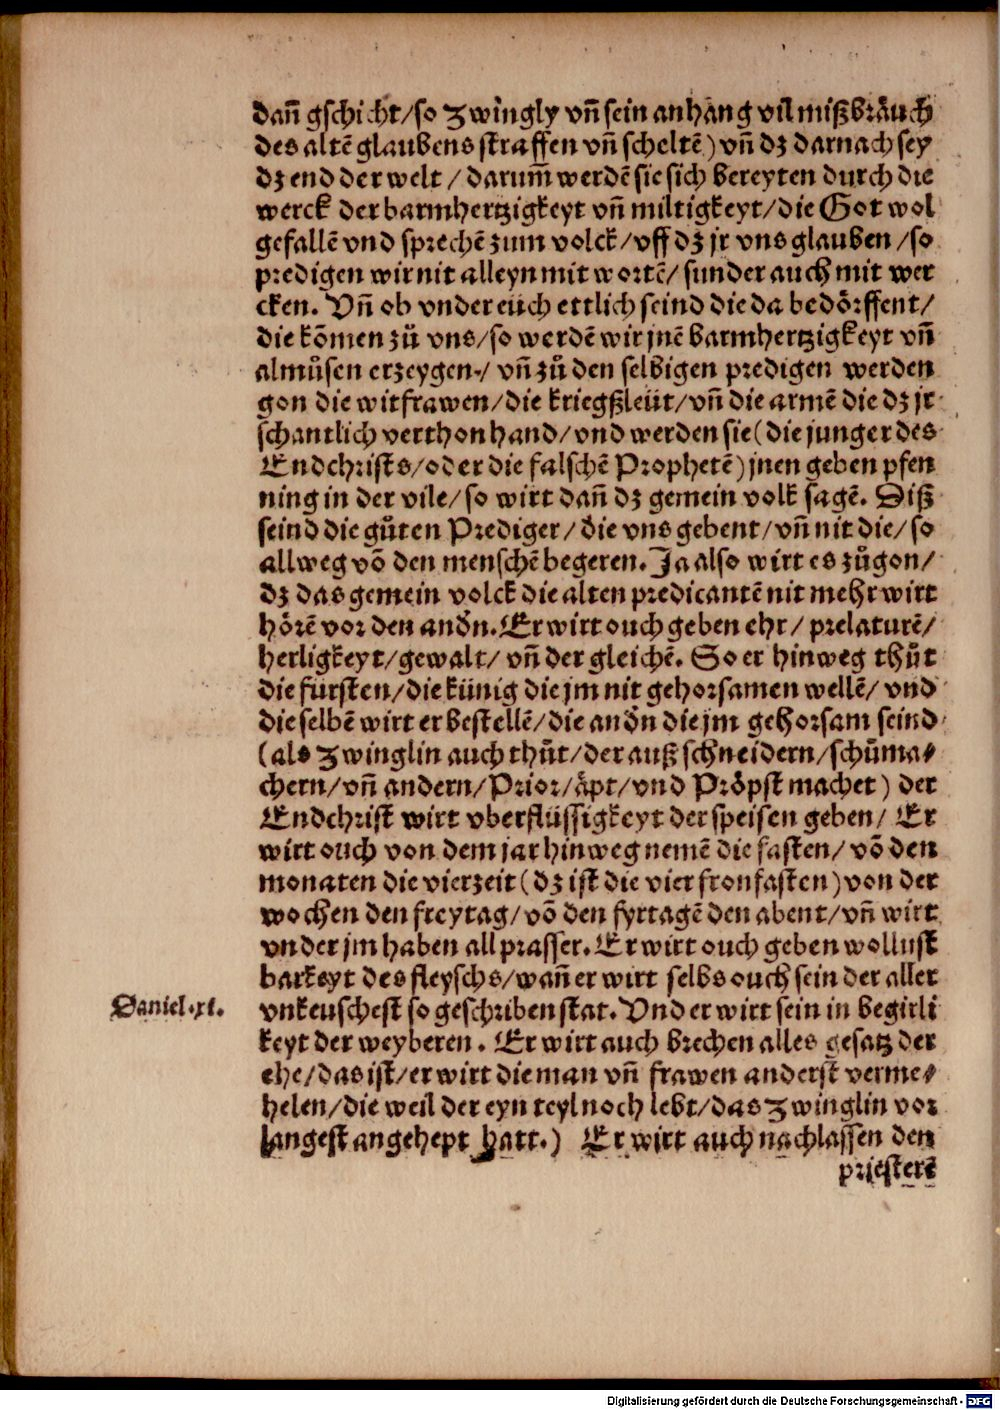 dañ gschicht/so Zwingly vñ sein anhang vil mißbräuch
des altē glaubens straffen vñ scheltē) vñ dz darnach sey
dz end der welt / darum̃ werdē sie sich bereyten durch die
werck der barmhertzigkeyt vñ miltigkeyt/die Got wol
gefallē vnd sprechē zum volck/vff dz jr vns glauben /so
predigen wir nit alleyn mit wortē/ sunder auch mit wer
cken. Vñ ob vnder euch ettlich seind die da bedörffent/
die kõmen zů vns/so werdē wir jnē barmhertzigkeyt vñ
almůsen erzeygen/ vñ zů den selbigen predigen werden
gon die witfrawen/die kriegßleüt/vñ die armē die dz jr
schantlich verthon hand/vnd werden sie(die junger des
Endchrists/oder die falschē Prophetē)jnen geben pfen
ning in der vile/so wirt dañ dz gemein volk sagē. Diß
seind die gůten Prediger/die vns gebent/vñ nit die/so
allweg võ den menschē begeren. Ja also wirt es zůgon/
dz das gemein volck die alten predicantē nit mehr wirt
hörē vor den andn̄. Er wirt ouch geben ehr/ prelaturē/
herligkeyt/gewalt/ vñ der gleichē. So er hinweg thůt
die fürsten/die künig die jm nit gehorsamen wellē/ vnd
die selbē wirt er bestellē/die andn̄ die jm gehorsam seind
(als Zwinglin auch thůt/der auß schneidern/schůma⸗
chern/vñ andern/Prior/äpt/vnd Pröpst machet) der
Endchrist wirt vberflüssigkeyt der speisen geben/ Er
wirt ouch von dem jar hinweg nemē die fasten/ võ den
monaten die vierzeit(dz ist die vier fronfasten)von der
wochen den freytag/võ den fyrtagē den abent/vñ wirt
vnder jm haben all prasser. Er wirt ouch geben wollust
barkeyt des fleyschs/wañ er wirt selbs ouch sein der aller
Daniel.xi.
vnkeuschest so geschriben stat. Vnd er wirt sein in begirli
keyt der weyberen. Er wirt auch brechen alles gesatz der
ehe/das ist/er wirt die man vñ frawen anderst verme⸗
helen/die weil der eyn teyl noch lebt/das Zwinglin vor
langest angehept hatt.) Er wirt auch nachlassen den
priesterē
Digitalisierung gefördert durch die Deutsche Forschungsgemeinschaft - DFG